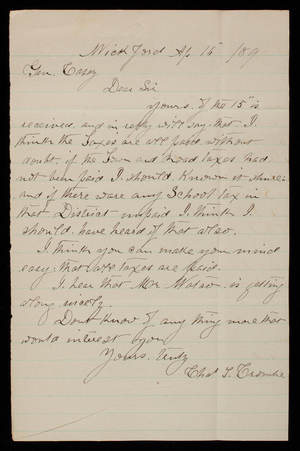 Wickford Ap 16 /89
Gen. Casey
Dear Sir
Yours of the 15" is
received. and in reply will say. that I
think the Taxes are all paid. without
doubt. if the Town and Road taxes had
not been paid I should known it shure.
and if there ware any School tax in
that District unpaid I think I
should. have heard of that also.
I think you can make your mind
easy. that all taxes are paid.
I hear that Mr Watson is getting
along nicely.
Dont know of any thing more that
would interest you
Yours. truly
Chas T.